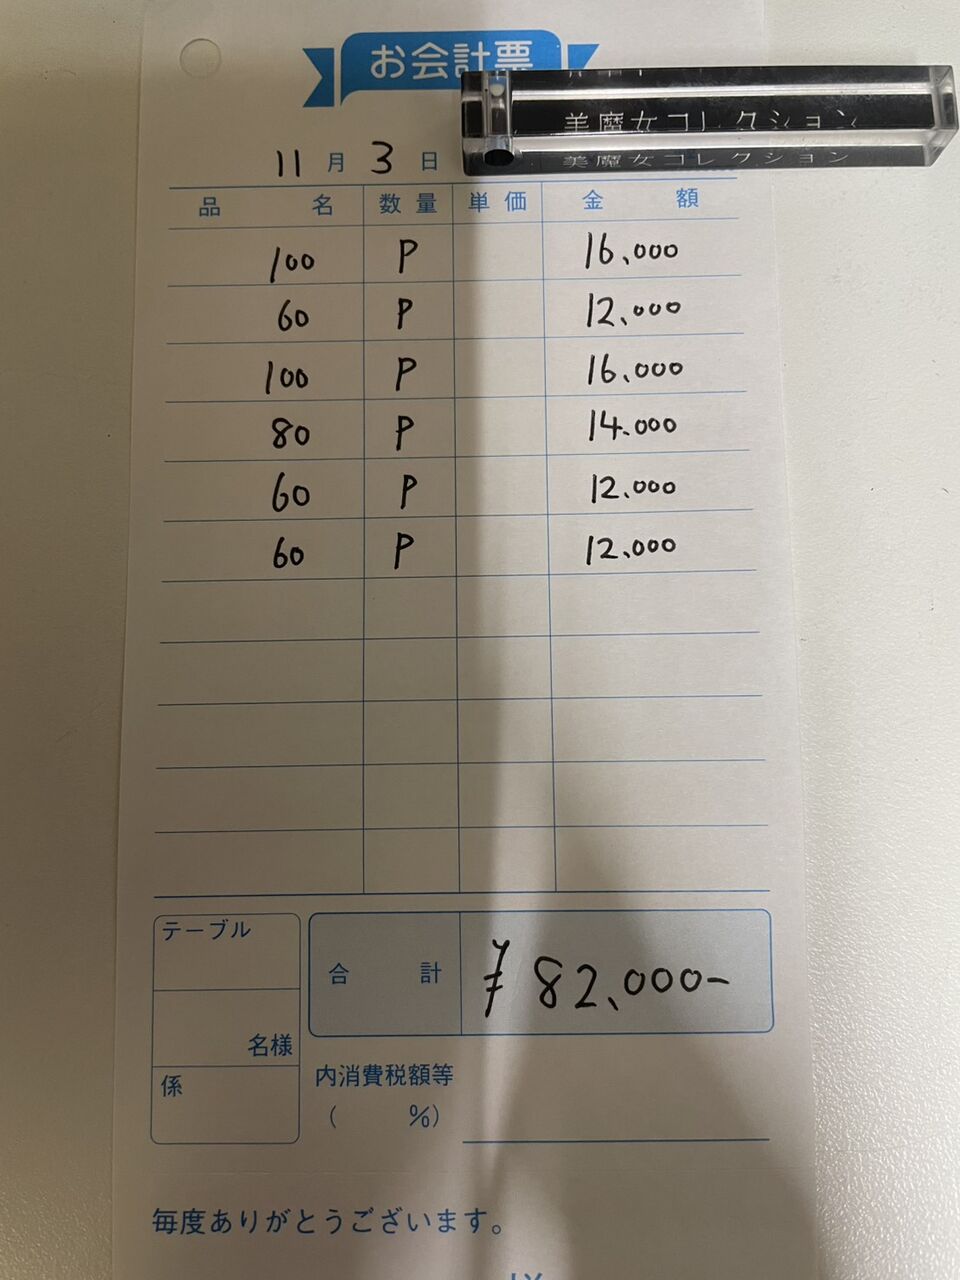 お会計票
美魔女コレクション
美魔女コレクション
11月3日
品名 数量 単価 金額
100 P 16,000
60 P 12,000
100 P 16,000
80 P 14,000
60 P 12,000
60 P 12,000
テーブル
名様
係
合計 ¥82,000-
内消費税額等
( %)
毎度ありがとうございます。